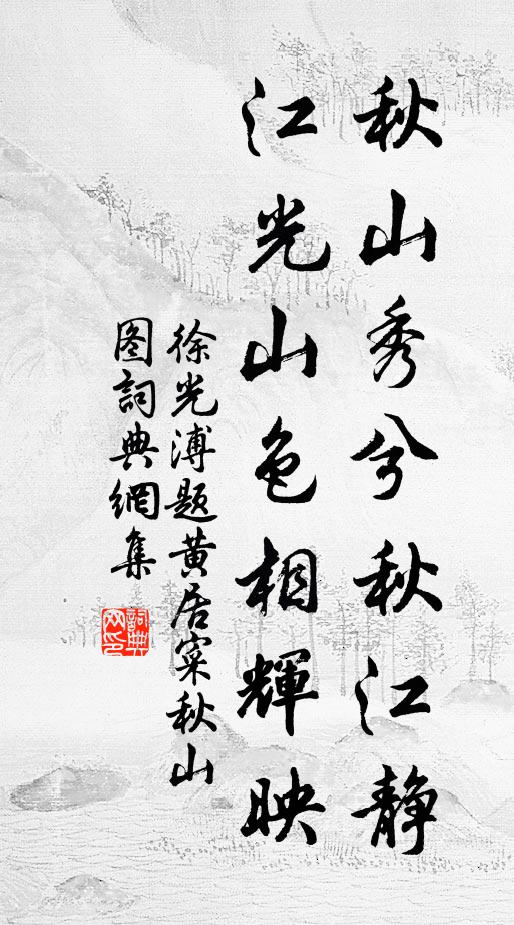 秋山秀兮秋江静
江光山色相輝映
徐光溥题黄居寀秋山
图詞典網集
詞典网印